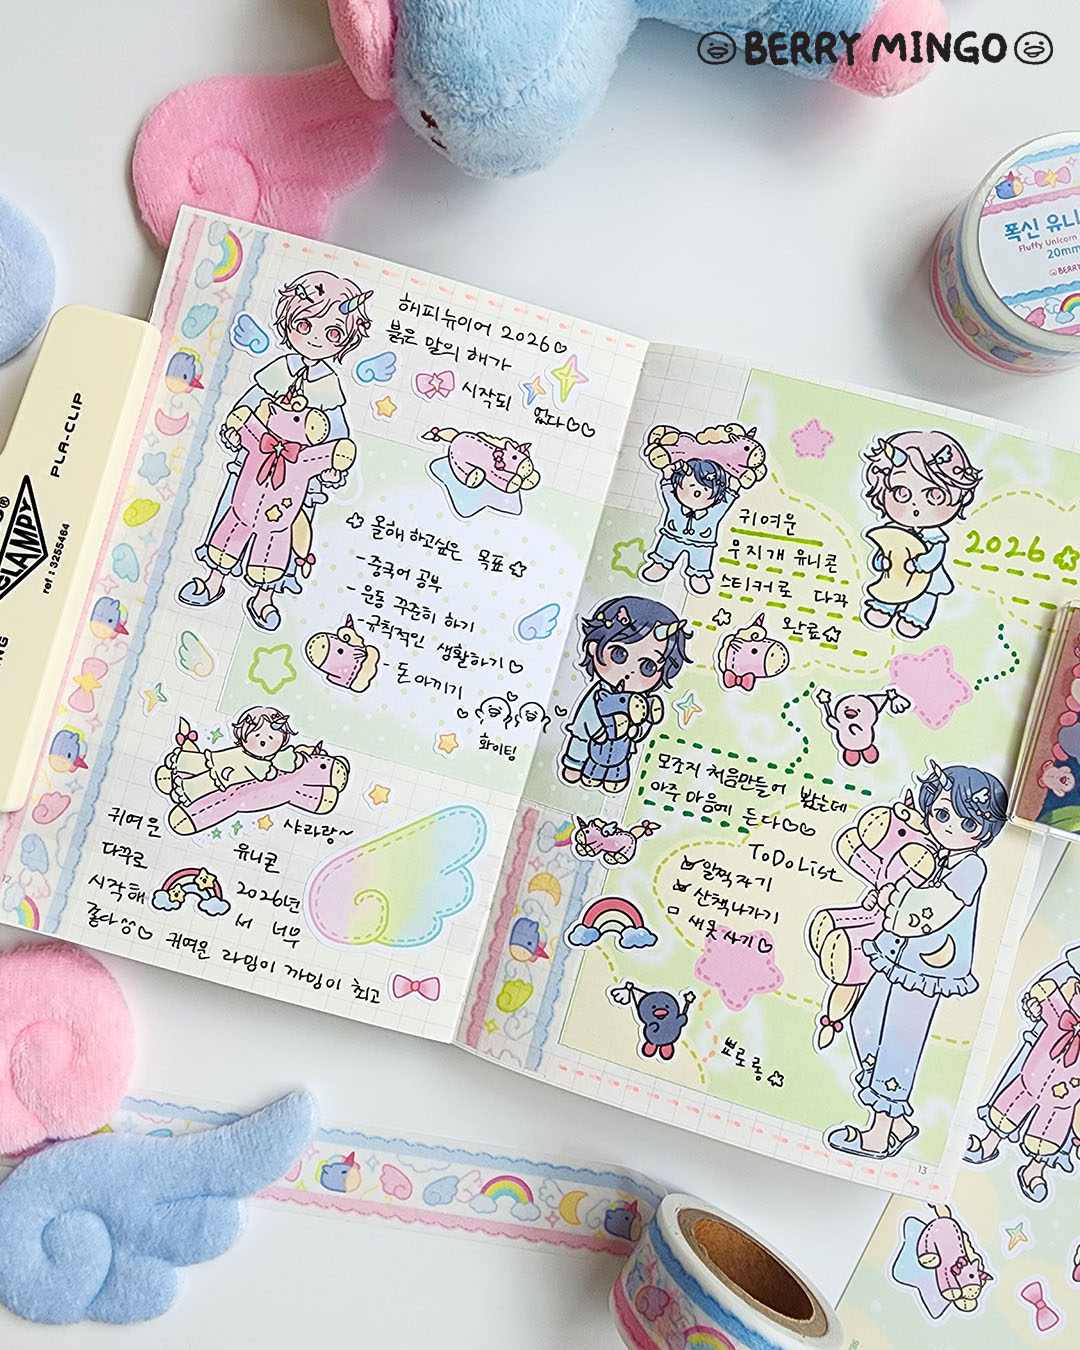 BERRY MINGO
폭신 유니
Fluffy Unicorn
20mm
BERRY
PLA-CLIP
CLAMPY
ref : 3255464
해피뉴이어 2026
붉은 말의 해가
시작되 었다
올해 하고싶은 목표
- 중국어 공부
- 운동 꾸준히 하기
- 규칙적인 생활하기
- 돈 아끼기
화이팅
귀여운
다꾸로
시작해
좋다
샤라랑~
유니콘
2026년
너무
귀여운 라밍이 까밍이 최고
12
귀여운
무지개 유니콘
스티커로 다꾸
완료
2026
모조지 처음만들어 봤는데
아주 마음에 든다
ToDoList
일찍자기
산책나가기
새옷 사기
뾰로롱
13